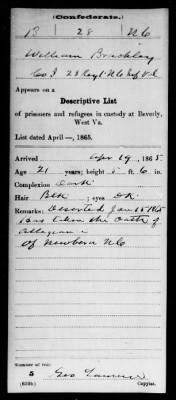 (Confederate.)
B 28 N C
William Brackley
Co I 28 Regt N C Inf Vol
Appears on a
Descriptive List
of prisoners and refugees in custody at Beverly,
West Va.
List dated April —, 1865.
Arrived Apr 29, 1865
Age 21 years; height 5 ft. 6 in.
Complexion Dark
Hair Blk ; eyes Dk
Remarks: Deserted Jan 15 1865
has taken the Oath of
Allegiance
Of Newbern N C
Number of roll:
5
(639b)
Geo
Copyist.